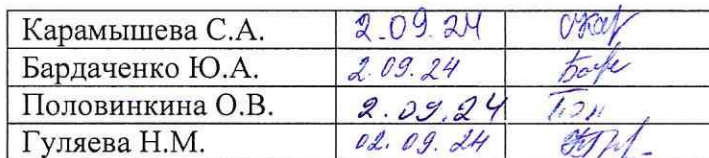 Карамышева С.А. 2.09.24
Бардаченко Ю.А. 2.09.24
Половинкина О.В. 2.09.24
Гуляева Н.М. 02.09.24